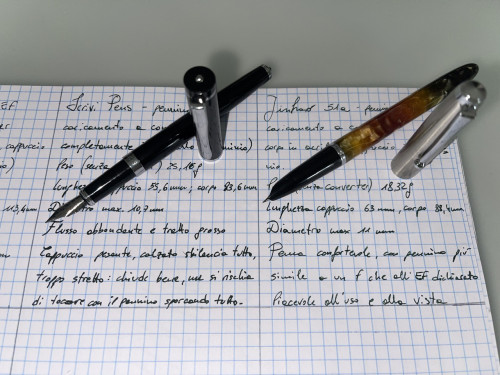 EF
cappuccio
113,6mm
Pens - pennino
caricamento a
completamente
Peso (senza
Lunghezza cappuccio 55,6mm; corpo 83,6mm
Diametro max. 10,7mm
Flusso abbondante e tratto grosso
Cappuccio pesante, calzato sbilancia tutto,
troppo stretto: chiude bene, ma si rischia
di toccare con il pennino sporcando tutto.
Jinhao 51a -
caricamento a
corpo in cappuccio
nio.
converter) 18,32g
Lunghezza cappuccio 63mm, corpo
Diametro max 11 mm
Penna confortevole, con pennino più
simile a un f che all'EF dichiarato
Piacevole all'uso e alla vista